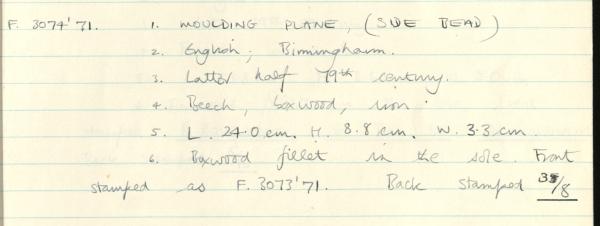 F. 3074'71. 1. MOULDING PLANE, (SIDE BEAD)
2. English; Birmingham.
3. Latter half 19th century.
4. Beech, boxwood, iron.
5. L. 24.0 cm. H. 8.8 cm. W. 3.3 cm.
6. Boxwood fillet in the sole. Front
stamped as F. 3073'71. Back stamped 3/8